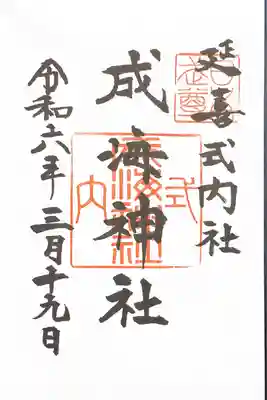 延喜式内社
成海神社
式内
成海神社
令和六年三月十九日